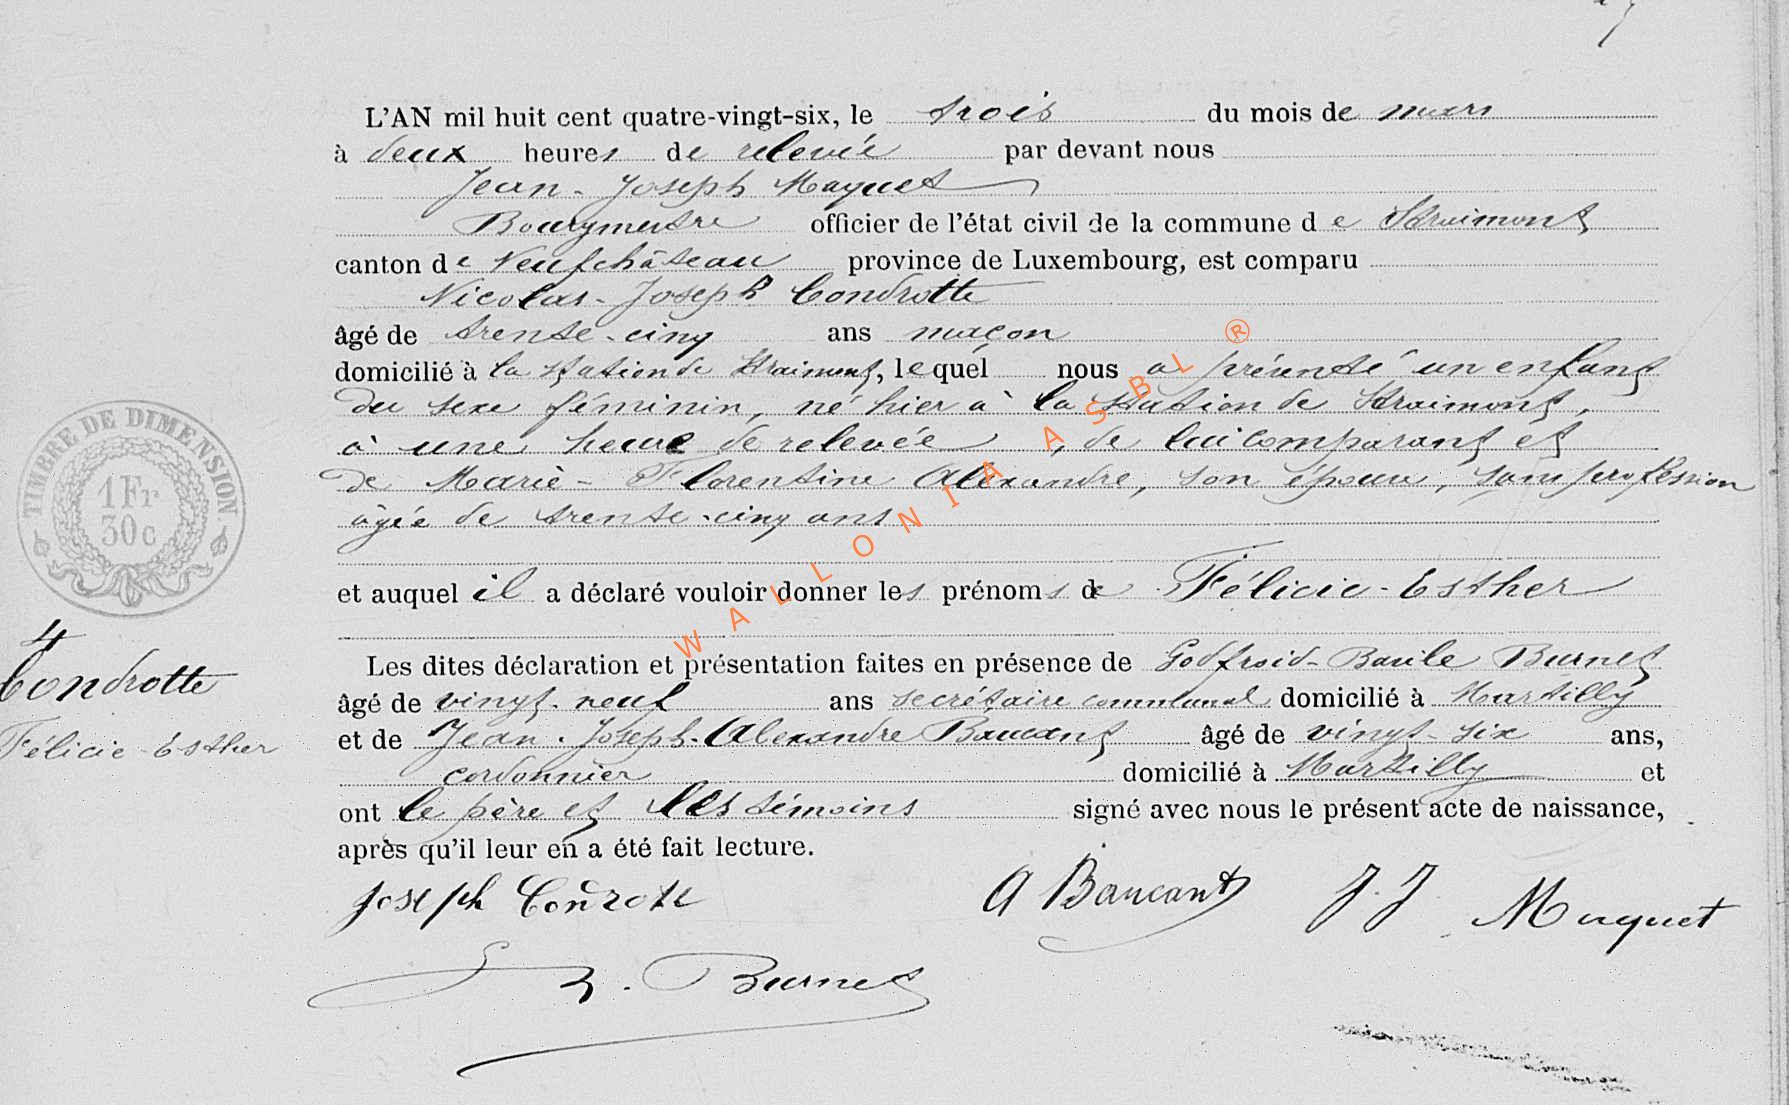 L'AN mil huit cent quatre-vingt-six, le trois du mois de mars
à deux heures de relevée par devant nous
Jean-Joseph Maquet
Bourgmestre officier de l'état civil de la commune de Straimont
canton de Neufchâteau province de Luxembourg, est comparu
Nicolas-Joseph Condrotte
âgé de trente-cinq ans maçon
domicilié à la station de Straimont, lequel nous a présenté un enfant
du sexe féminin, né hier à la station de Straimont,
à une heure de relevée, de lui comparant et
de Marie-Florentine Alexandre, son épouse, sans profession
âgée de trente-cinq ans
et auquel il a déclaré vouloir donner les prénoms de Félicie-Esther
Les dites déclaration et présentation faites en présence de Godfroid-Basile Burnet
âgé de vingt-neuf ans secrétaire communal domicilié à Martilly
et de Jean-Joseph-Alexandre Baucant âgé de vingt-six ans,
cordonnier domicilié à Martilly et
ont le père et les témoins signé avec nous le présent acte de naissance,
après qu'il leur en a été fait lecture.
Joseph Condrotte A Baucant J. J. Maquet
B. Burnet
TIMBRE DE DIMENSION
1 Fr
30 c
4
Condrotte
Félicie-Esther
WALLONIA ASBL ®